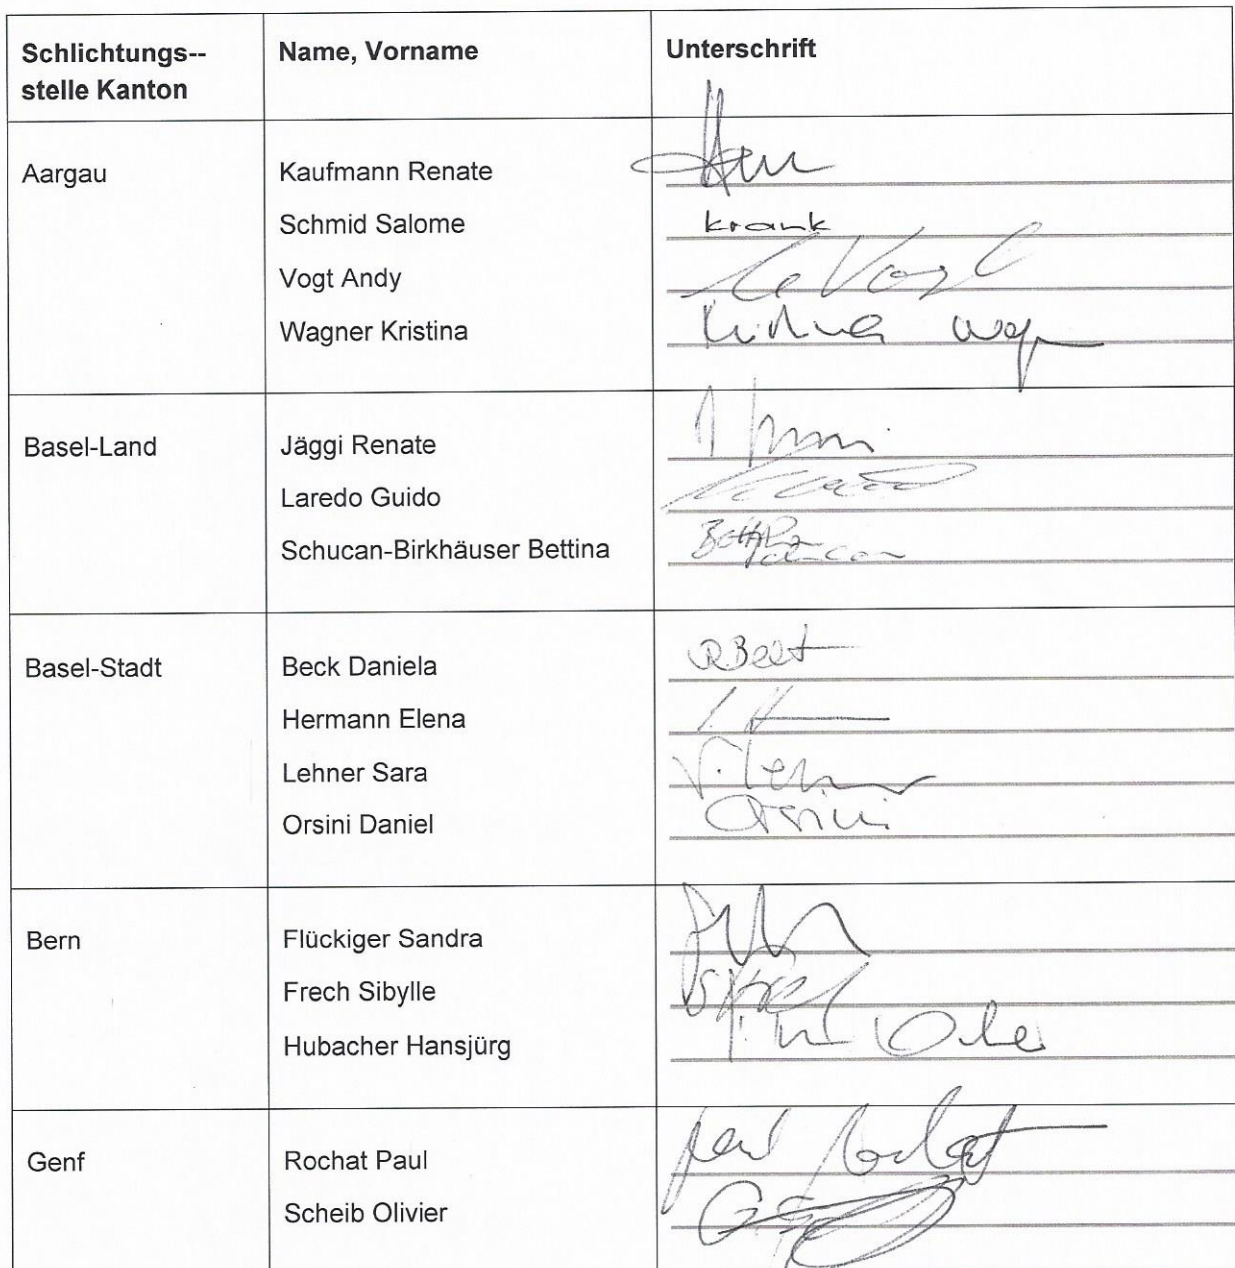 Schlichtungs-- Name, Vorname Unterschrift
stelle Kanton
Aargau Kaufmann Renate
Schmid Salome krank
Vogt Andy Vogt
Wagner Kristina Kristina Wagner
Basel-Land Jäggi Renate
Laredo Guido
Schucan-Birkhäuser Bettina Bettina Schucan
Basel-Stadt Beck Daniela
Hermann Elena
Lehner Sara S. Lehner
Orsini Daniel Orsini
Bern Flückiger Sandra
Frech Sibylle
Hubacher Hansjürg
Genf Rochat Paul Paul Rochat
Scheib Olivier